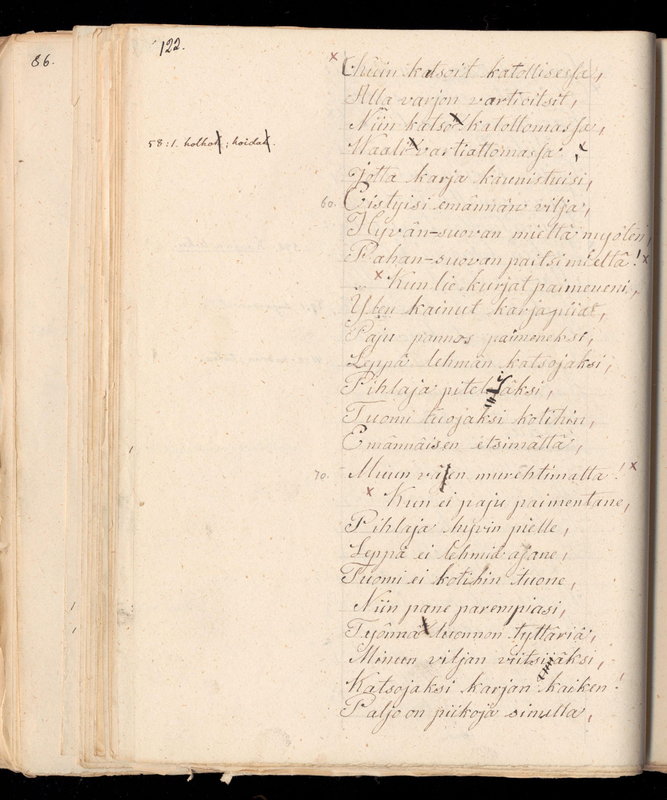 86.
122.
58:1. holhot; hoidat.
x Kuin katsoit katollisessa,
Alla varjon vartioitsit,
Niin katso katottomassa,
Vaali vartiattomassa,
Jotta karja kaunistuisi,
60. Eistyisi emännän vilja,
Hyvän-suovan mieltä myöten,
Pahan-suovan paitsi mieltä! x
x Kun lie kurjat paimeneni,
Yten kainut karjapiiat,
Paju pannos paimeneksi,
Leppä lehmän katsojaksi,
Pihlaja pitelijäksi,
Tuomi tuojaksi kotihin,
Emännäisen etsimättä,
70. Muun väen murehtimatta! x
x Kun ei paju paimentane,
Pihlaja hyvin pielle,
Leppä ei lehmiä ajane,
Tuomi ei kotihin tuone,
Niin pane parempiasi,
Työnnä luonnon tyttäriä,
Minun viljan viitsijäksi,
Katsojaksi karjan kaiken!
Paljo on piikoja sinulla,